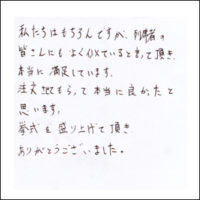 私たちはもちろんですが、列席者の
皆さんにもよく似ていると言って頂き、
本当に満足しています。
注文してもらって本当に良かったと
思います。
挙式も盛り上げて頂き
ありがとうございました。